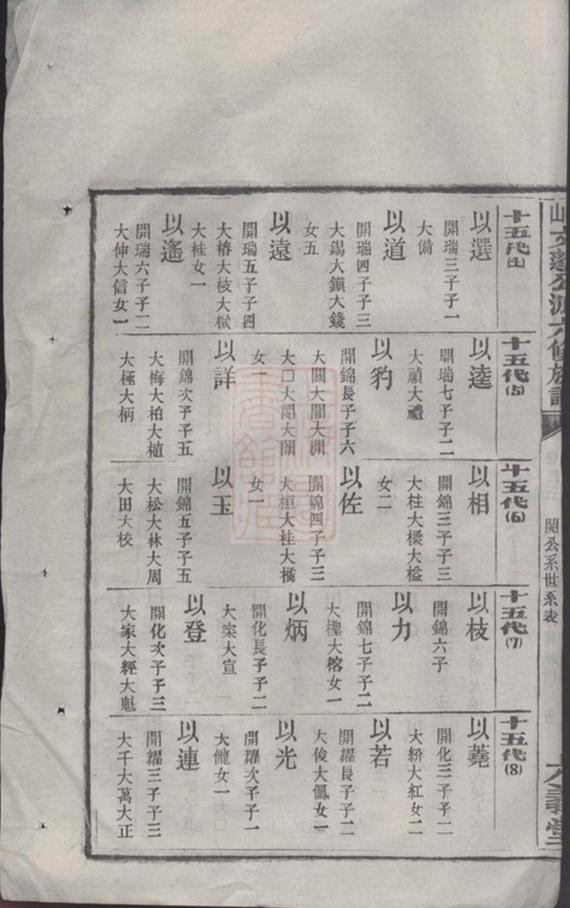 公派六修族譜
閱公系世系表
六義堂
十五代(4)
以選
開瑞三子子一
大備
以道
開瑞四子子三
大錫大鎮大錢
女五
以遠
開瑞五子子四
大椿大枝大棫
大桂女一
以遙
開瑞六子子二
大伸大信女一
十五代(5)
以逵
開瑞七子子二
大禎大禮
以豹
開錦長子子六
大闢大闇大開
大口大閔大闇
女一
以詳
開錦次子子五
大梅大柏大植
大極大柄
十五代(6)
以相
開錦三子子三
大柱大樑大檢
女二
以佐
開錦四子子三
大桓大桂大橘
女一
以玉
開錦五子子五
大松大林大周
大田大校
十五代(7)
以枝
開錦六子
以力
開錦七子子二
大檉大榕女一
以炳
開化長子子二
大棠大宣
以登
開化次子子三
大家大經大魁
十五代(8)
以蕘
開化三子子二
大紛大紅女二
以若
開耀長子子二
大俊大佩女一
以光
開耀次子子一
大儱女一
以連
開耀三子子三
大千大萬大正